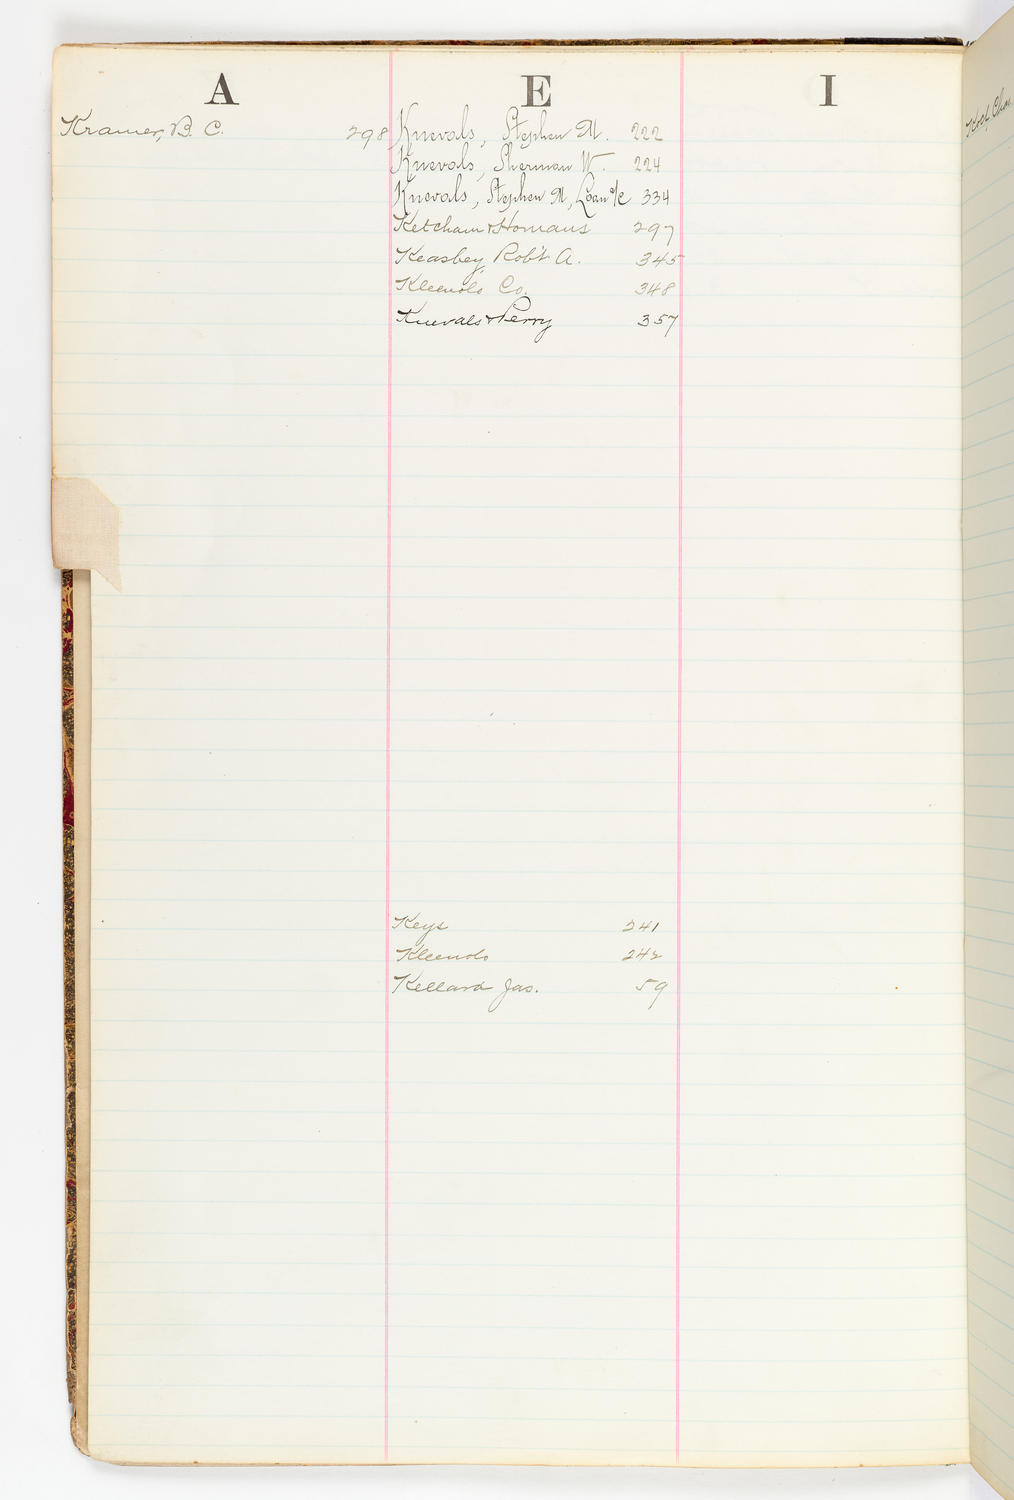 A E I
Kramer, B. C. 298
Knevals, Stephen M. 222
Knevals, Sherman W. 224
Knevals, Stephen M, Loan a/c 334
Ketcham & Homans 297
Keasbey, Rob't A. 345
Kleenolo Co. 348
Knevals & Perry 357
Keys 241
Kleenolo 242
Kellard Jas. 59
Koch, Chas.